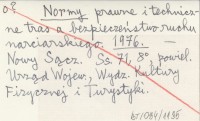 Normy prawne i technicz-
ne tras a bezpieczeństwo ruchu
narciarskiego. 1976. —
Nowy Sącz. Ss. 71, 8° powiel.
Urząd Wojew., Wydz. Kultury
Fizycznej i Turystyki.